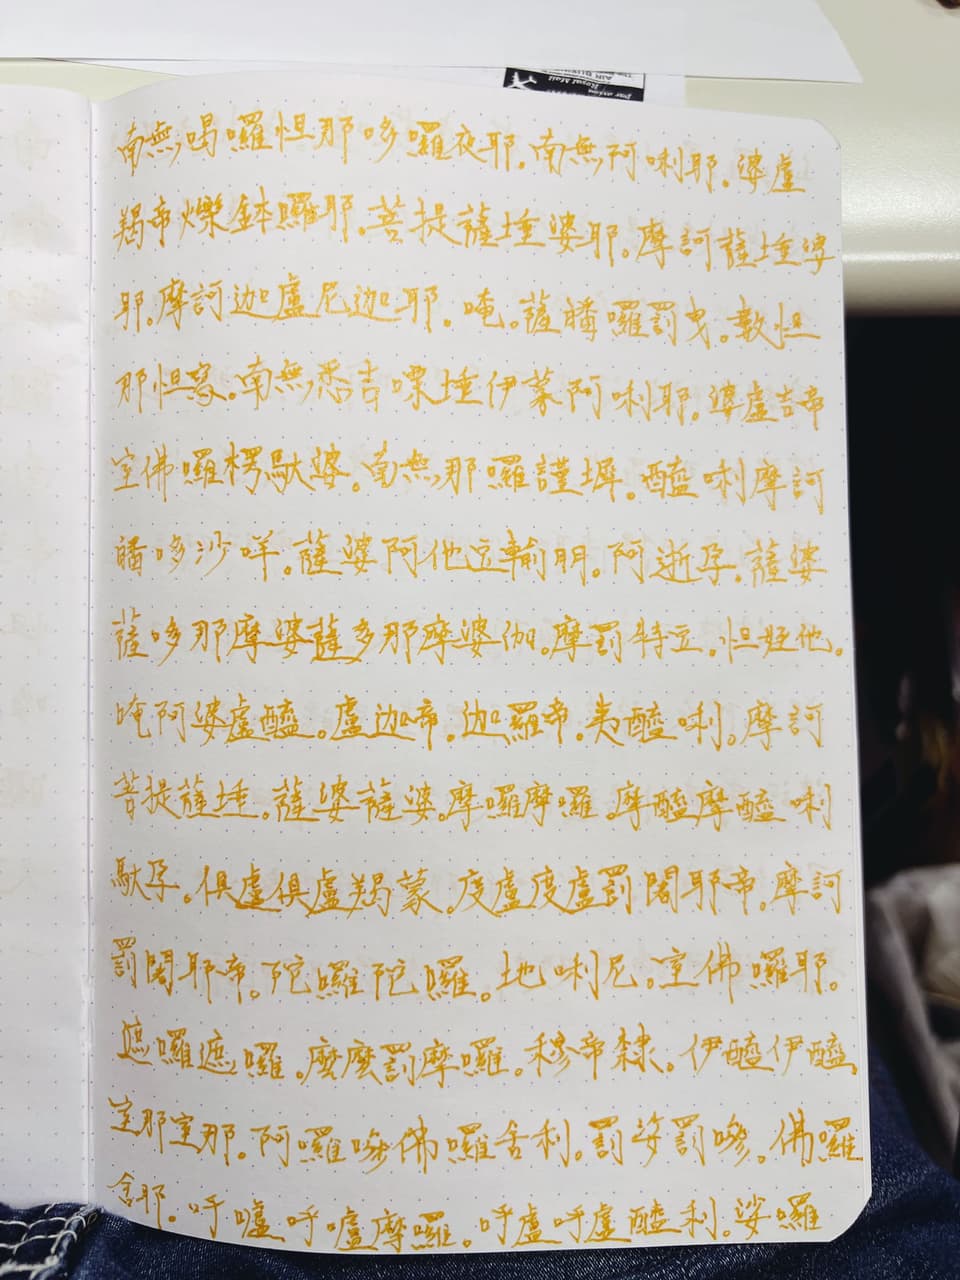 par avion
Royal Mail
南無喝囉怛那哆囉夜耶。南無阿唎耶。婆盧
羯帝爍鉢囉耶。菩提薩埵婆耶。摩訶薩埵婆
耶。摩訶迦盧尼迦耶。唵。薩皤囉罰曳。數怛
那怛寫。南無悉吉嘌埵伊蒙阿唎耶。婆盧吉帝
室佛囉楞馱婆。南無那囉謹墀。醯唎摩訶
皤哆沙咩。薩婆阿他豆輸朋。阿逝孕。薩婆
薩哆那摩婆薩多那摩婆伽。摩罰特豆。怛姪他。
唵阿婆盧醯。盧迦帝。迦羅帝。夷醯唎。摩訶
菩提薩埵。薩婆薩婆。摩囉摩囉。摩醯摩醯唎
馱孕。俱盧俱盧羯蒙。度盧度盧罰闍耶帝。摩訶
罰闍耶帝。陀囉陀囉。地唎尼。室佛囉耶。
遮囉遮囉。麼麼罰摩囉。穆帝隸。伊醯伊醯。
室那室那。阿囉嘇佛囉舍利。罰娑罰嘇。佛囉
舍耶。呼嚧呼嚧摩囉。呼盧呼盧醯利。娑囉